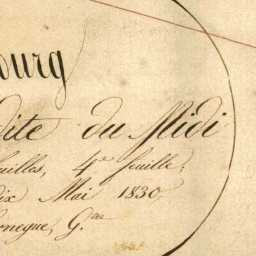 ourg
dite du Midi
uilles, 4e feuille,
ix Mai 1830
onegue, Gar